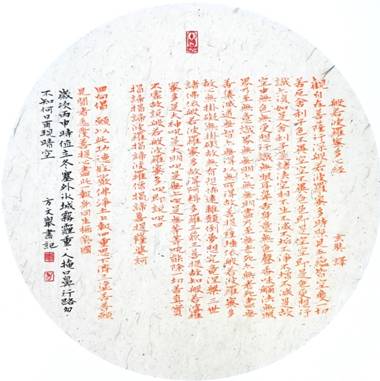 般若波羅蜜多心經
玄奘 譯
觀自在菩薩行深般若波羅蜜多時照見五蘊皆空度一切
苦厄舍利子色不異空空不異色色即是空空即是色受想行
識亦復如是舍利子是諸法空相不生不滅不垢不淨不增不減是故
空中無色無受想行識無眼耳鼻舌身意無色聲香味觸法無眼
界乃至無意識界無無明亦無無明盡乃至無老死亦無老死盡無
苦集滅道無智亦無得以無所得故菩提薩埵依般若波羅蜜多
故心無掛礙無掛礙故無有恐怖遠離顛倒夢想究竟涅槃三世
諸佛依般若波羅蜜多故得阿耨多羅三藐三菩提故知般若波羅
蜜多是大神咒是大明咒是無上咒是無等等咒能除一切苦真實
不虛故說般若波羅蜜多咒即說咒曰
揭諦揭諦波羅揭諦波羅僧揭諦菩提薩婆訶
回向偈 願以此功德莊嚴佛淨土上報四重恩下濟三途苦若有
見聞者悉發菩提心盡此一報身同生極樂國
歲次丙申時值立冬塞外冰城霧霾重人掩口鼻行路匆
不知何日再現晴空
方文 書記